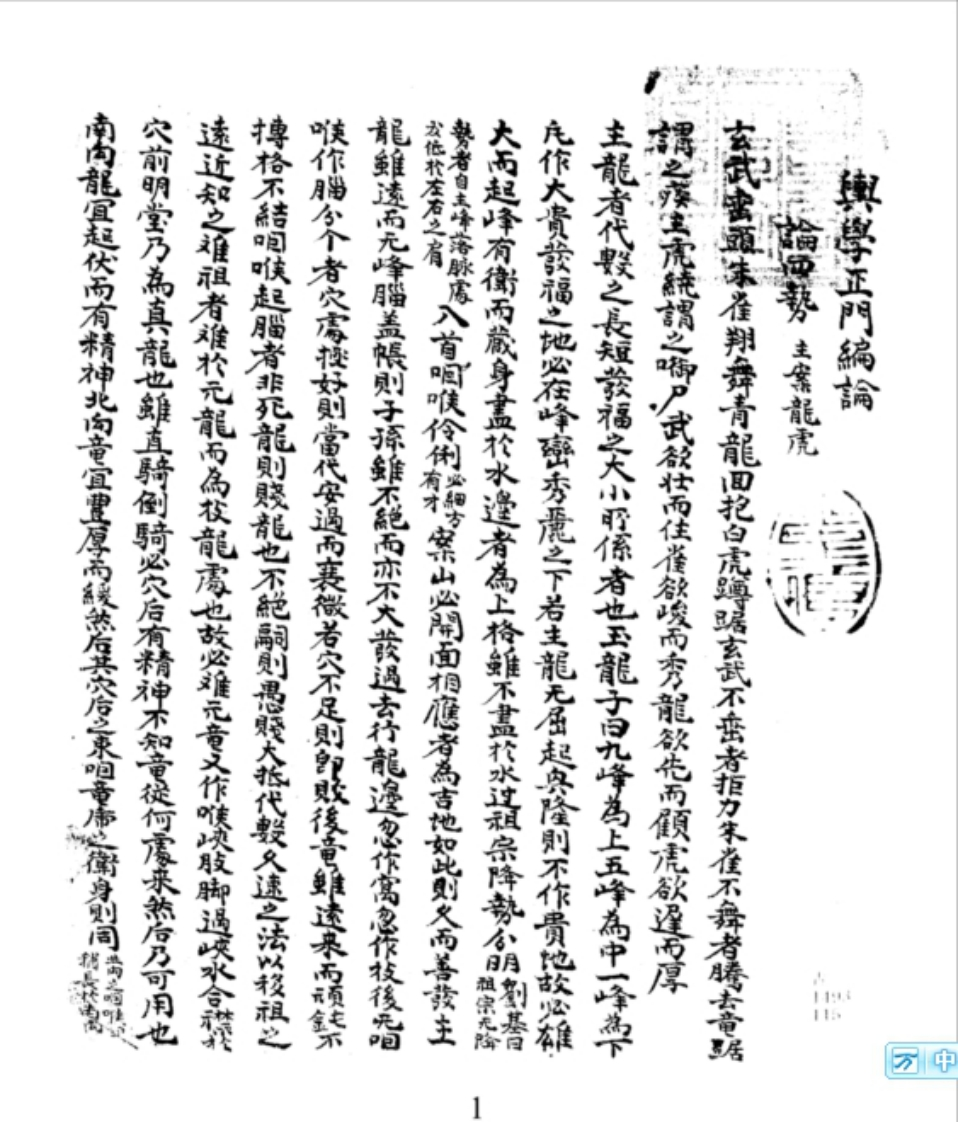 輿學正門編論
論四勢 主案龍虎
玄武垂頭朱雀翔舞青龍面抱白虎蹲踞玄武不垂者拒尸朱雀不舞者騰去竜踞
謂之疾主虎繞謂之啣尸武欲壯而佳雀欲峻而秀龍欲先而顧虎欲遲而厚
主龍者代數之長短發福之大小所係者也玉龍子曰九峰為上五峰為中一峰為下
凡作大貴發福之地必在峰巒秀麗之下若主龍无屈起興隆則不作貴地故必雄
大而起峰有衛而藏身盡於水邊者為上格雖不盡於水过祖宗降勢分明 劉基曰祖宗无降
勢者自主峰落脉處或低於左右之肩 入首咽喉伶俐 必細方有才 案山必開面相應者為吉地如此則久而善發主
龍雖遠而无峰腦盖帳則子孫雖不絕而亦不大發過去行龍邊忽作窩忽作枝後无咽
喉作腦分个者穴處極好則當代安過而衰微若穴不足則即敗後竜雖遠来而頑鈍不
摶格不結咽喉起腦者非死龍則賤龍也不絕嗣則愚賤大抵代數久速之法以移祖之
遠近知之难祖者难於元龍而為枝龍處也故必难元竜又作喉峽股脚過峽水合襟於
穴前明堂乃為真龍也雖直騎倒騎必穴后有精神不知竜從何處来然后乃可用也
南向龍宜起伏而有精神北向竜宜豐厚而緩然后其穴后之束咽竜席之衛身則同
1
中